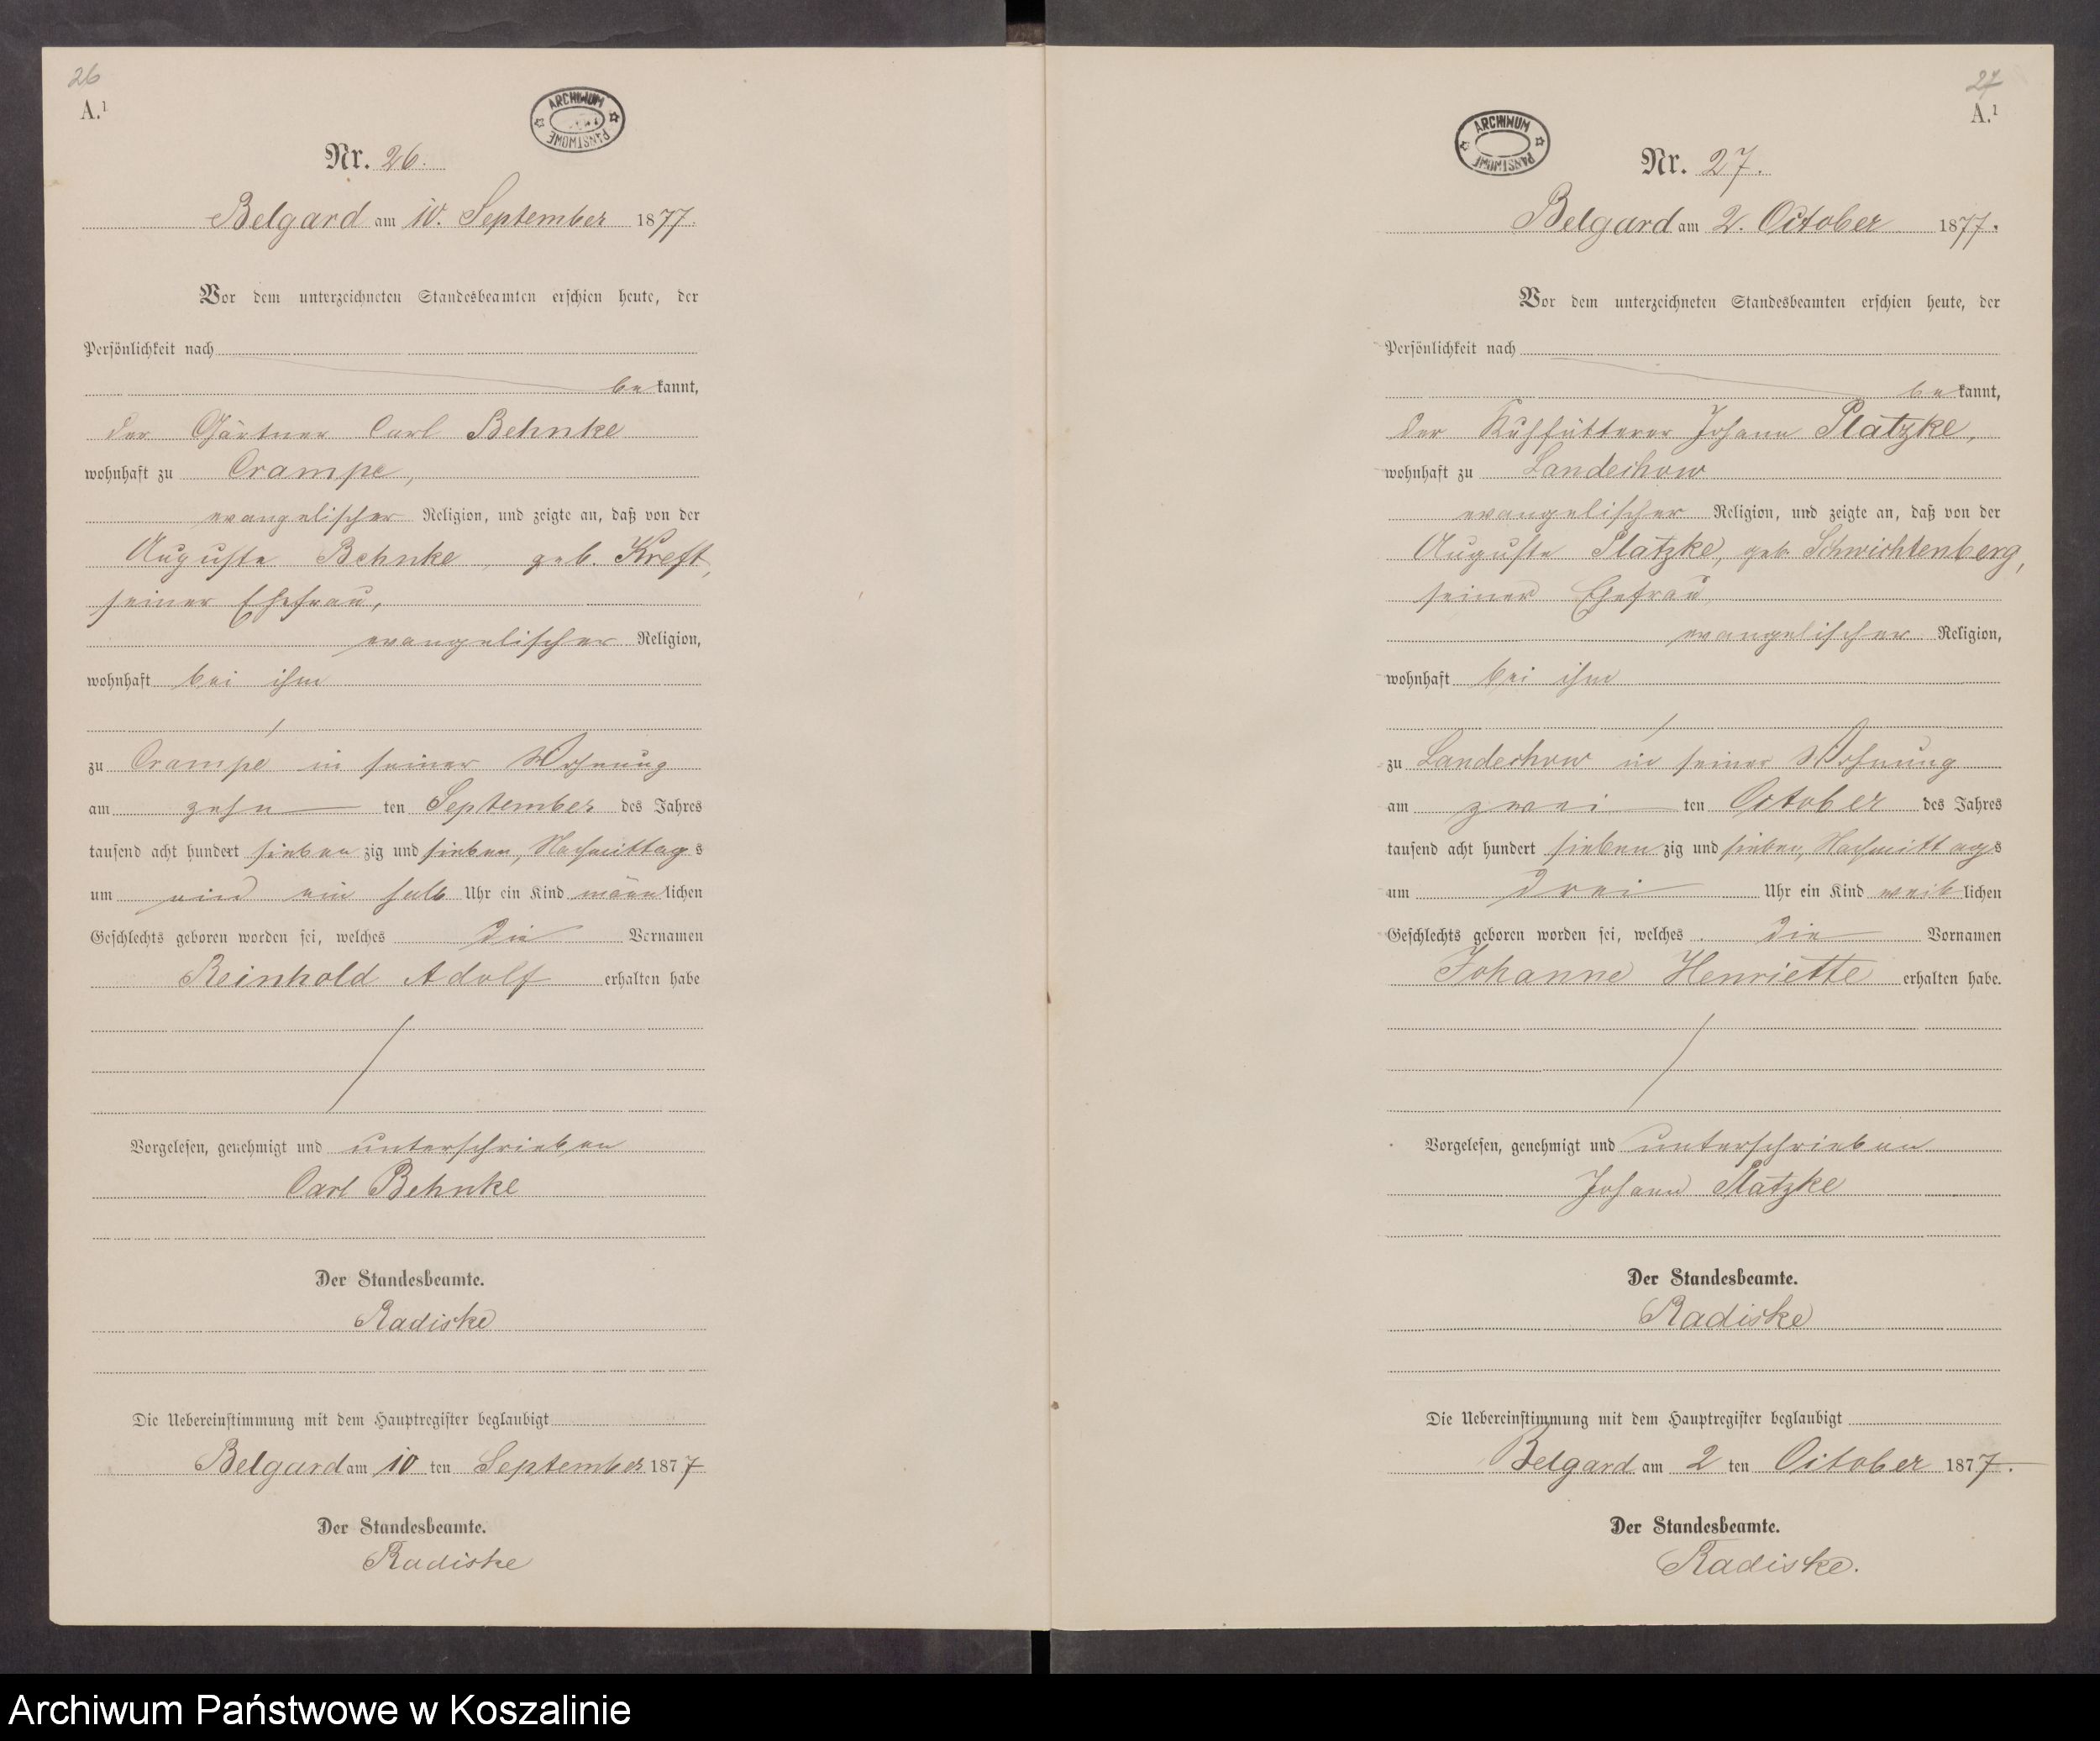 26
A.¹
ARCHIWUM PAŃSTWOWE
Nr. 26.
Belgard am 10. September 1877.
Vor dem unterzeichneten Standesbeamten erschien heute, der
Persönlichkeit nach
bekannt,
der Gärtner Carl Behnke
wohnhaft zu Crampe,
evangelischer Religion, und zeigte an, daß von der
Auguste Behnke, geb. Kreft,
seiner Ehefrau,
evangelischer Religion,
wohnhaft bei ihm
zu Crampe in seiner Wohnung
am zehn ten September des Jahres
tausend acht hundert siebenzig und sieben, Nachmittags
um ein ein halb Uhr ein Kind männlichen
Geschlechts geboren worden sei, welches die Vornamen
Reinhold Adolf erhalten habe
Vorgelesen, genehmigt und unterschrieben
Carl Behnke
Der Standesbeamte.
Radiske
Die Uebereinstimmung mit dem Hauptregister beglaubigt
Belgard am 10 ten September 1877
Der Standesbeamte.
Radiske
27
A.¹
ARCHIWUM PAŃSTWOWE
Nr. 27.
Belgard am 2. October 1877.
Vor dem unterzeichneten Standesbeamten erschien heute, der
Persönlichkeit nach
bekannt,
der Kuhfütterer Johann Platzke,
wohnhaft zu Landechow
evangelischer Religion, und zeigte an, daß von der
Auguste Platzke, geb. Schwichtenberg,
seiner Ehefrau,
evangelischer Religion,
wohnhaft bei ihm
zu Landechow in seiner Wohnung
am zwei ten October des Jahres
tausend acht hundert siebenzig und sieben, Nachmittags
um drei Uhr ein Kind weiblichen
Geschlechts geboren worden sei, welches die Vornamen
Johanne Henriette erhalten habe.
Vorgelesen, genehmigt und unterschrieben
Johann Platzke
Der Standesbeamte.
Radiske
Die Uebereinstimmung mit dem Hauptregister beglaubigt
Belgard am 2 ten October 1877.
Der Standesbeamte.
Radiske.
Archiwum Państwowe w Koszalinie